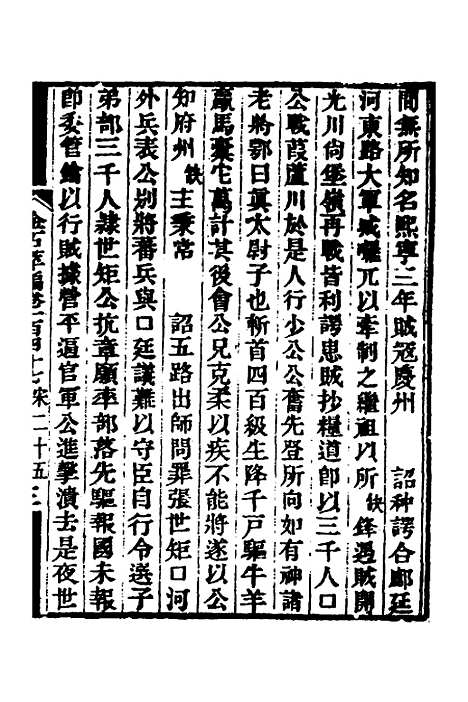 間無所知名熙寧三年賊寇慶州　詔种諤合鄜廷
河東路大軍城囉兀以牽制之繼祖以所缺鋒遇賊開
光川尙堡嶺再戰皆利諤患賊抄糧道卽以三千人口
公戰葭蘆川於是人行少公公奮先登所向如有神諸
老將鄂曰眞太尉子也斬首四百級生降千戸驅牛羊
贏馬橐它萬計其後會公兄克柔以疾不能將遂以公
知府州缺主秉常　詔五路出師問罪張世矩口河
外兵表公别將蕃兵與口廷議難以守臣自行令選子
弟部三千人隷世矩公抗章願率部落先驅報國未報
卽委管鑰以行賊據營平逼官軍公進擊潰去是夜世
金石萃編卷一百四十七宋二十五 三